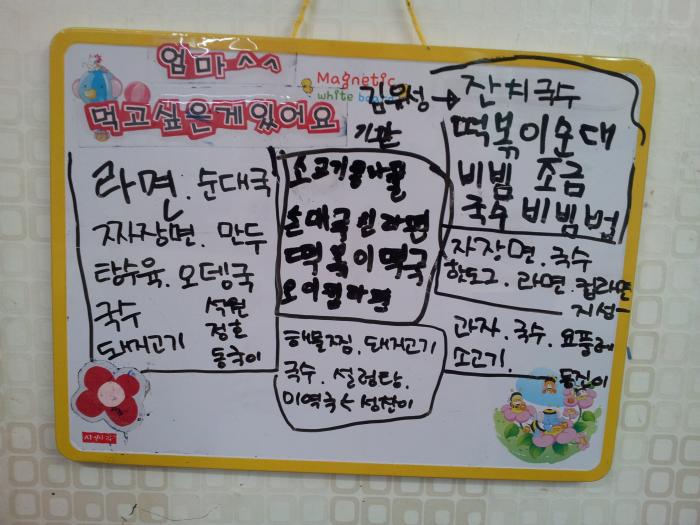 엄마^^
먹고싶은게있어요
Magnetic
white board
라면. 순대국
짜장면. 만두
탕수육. 오뎅국
국수
돼지고기
석원
정호
동국이
기관
순대국신라면
떡볶이떡국
해물찜. 돼지고기
국수. 설렁탕.
미역국 < 성찬이
김우성→잔치국수
떡볶이순대
비빔 조금
국수 비빔법
자장면. 국수
핫도그. 라면. 컵라면
지성
과자. 국수. 요플레
또고기.
동진이